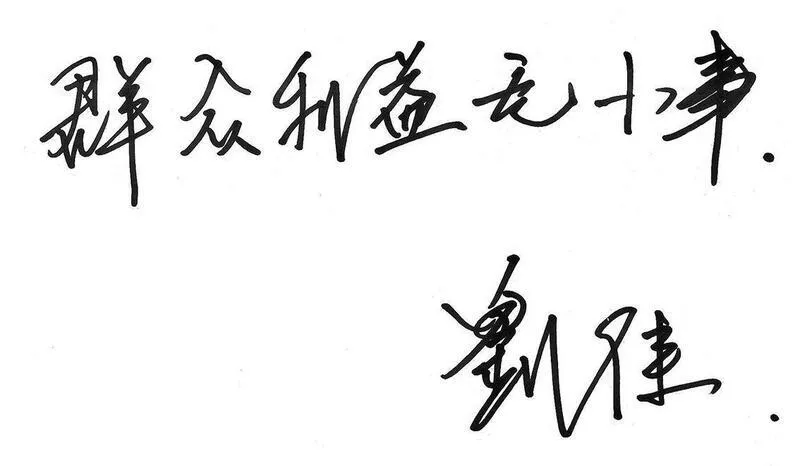 群众利益无小事.
劉佳.